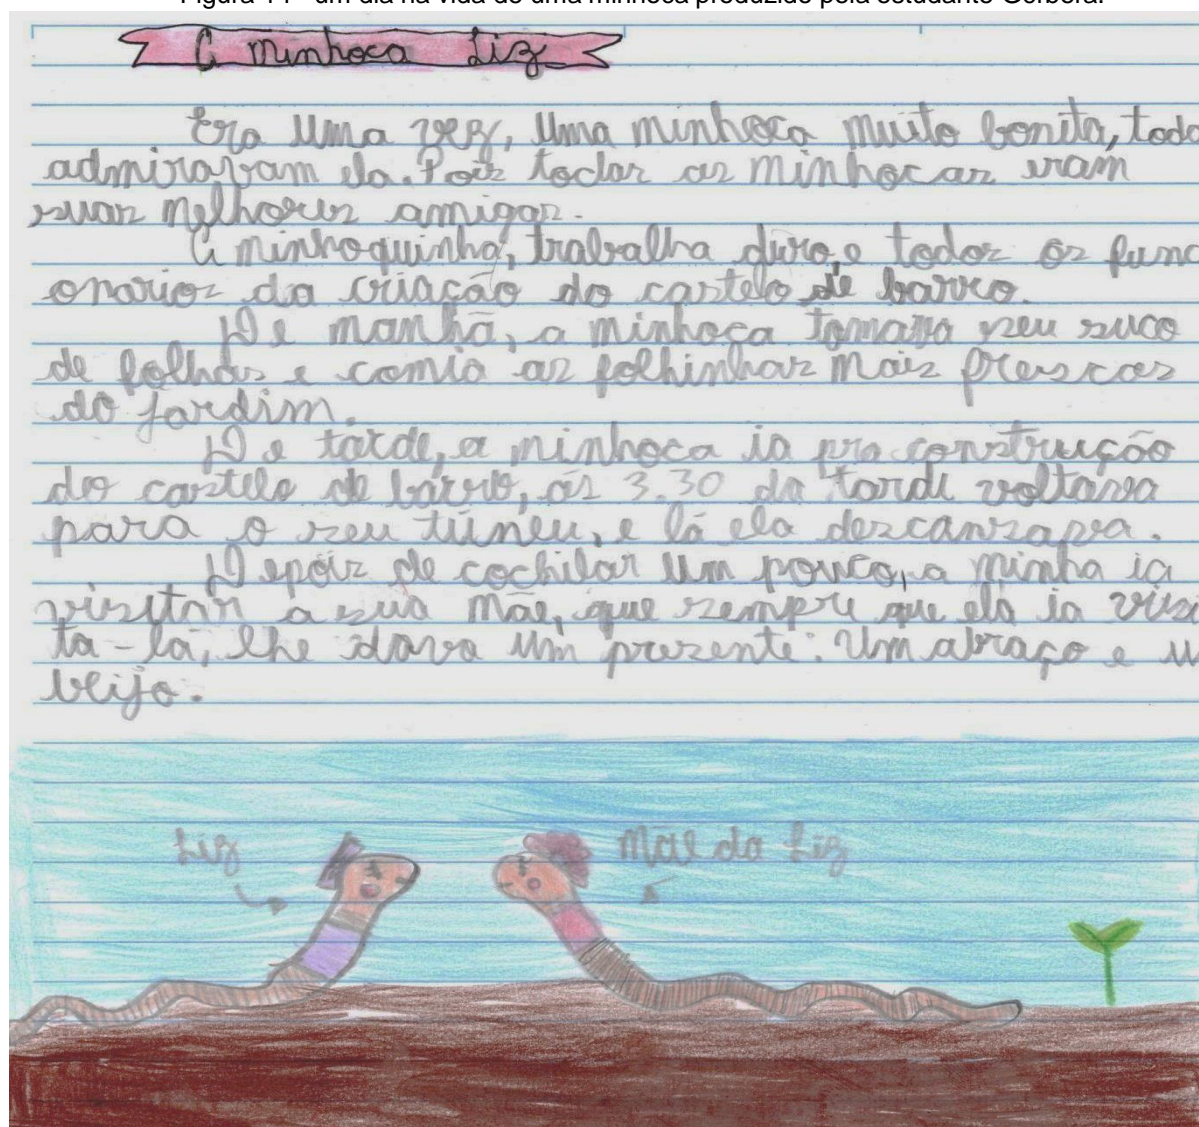 Figura 14 - um dia na vida de uma minhoca produzido pela estudante Gérbera.
A minhoca Liz
Era uma vez, uma minhoca muito bonita, todo
admiravam ela. Pois todas as minhocas eram
suas melhores amigas.
A minhoquinha, trabalha duro, e todos os func
onarios da criação do castelo de barro.
De manhã, a minhoca tomava seu suco
de folhas e comia as folhinhas mais frescas
do jardim.
De tarde, a minhoca ia pra construção
do castelo de barro, ás 3.30 da tarde voltava
para o seu túneu, e lá ela descansava.
Depois de cochilar um pouco, a minha ia
visitar a sua mãe, que sempre que ela ia visi
ta-la, lhe dava um presente: Um abraço e u
beijo.
Liz
Mãe da Liz